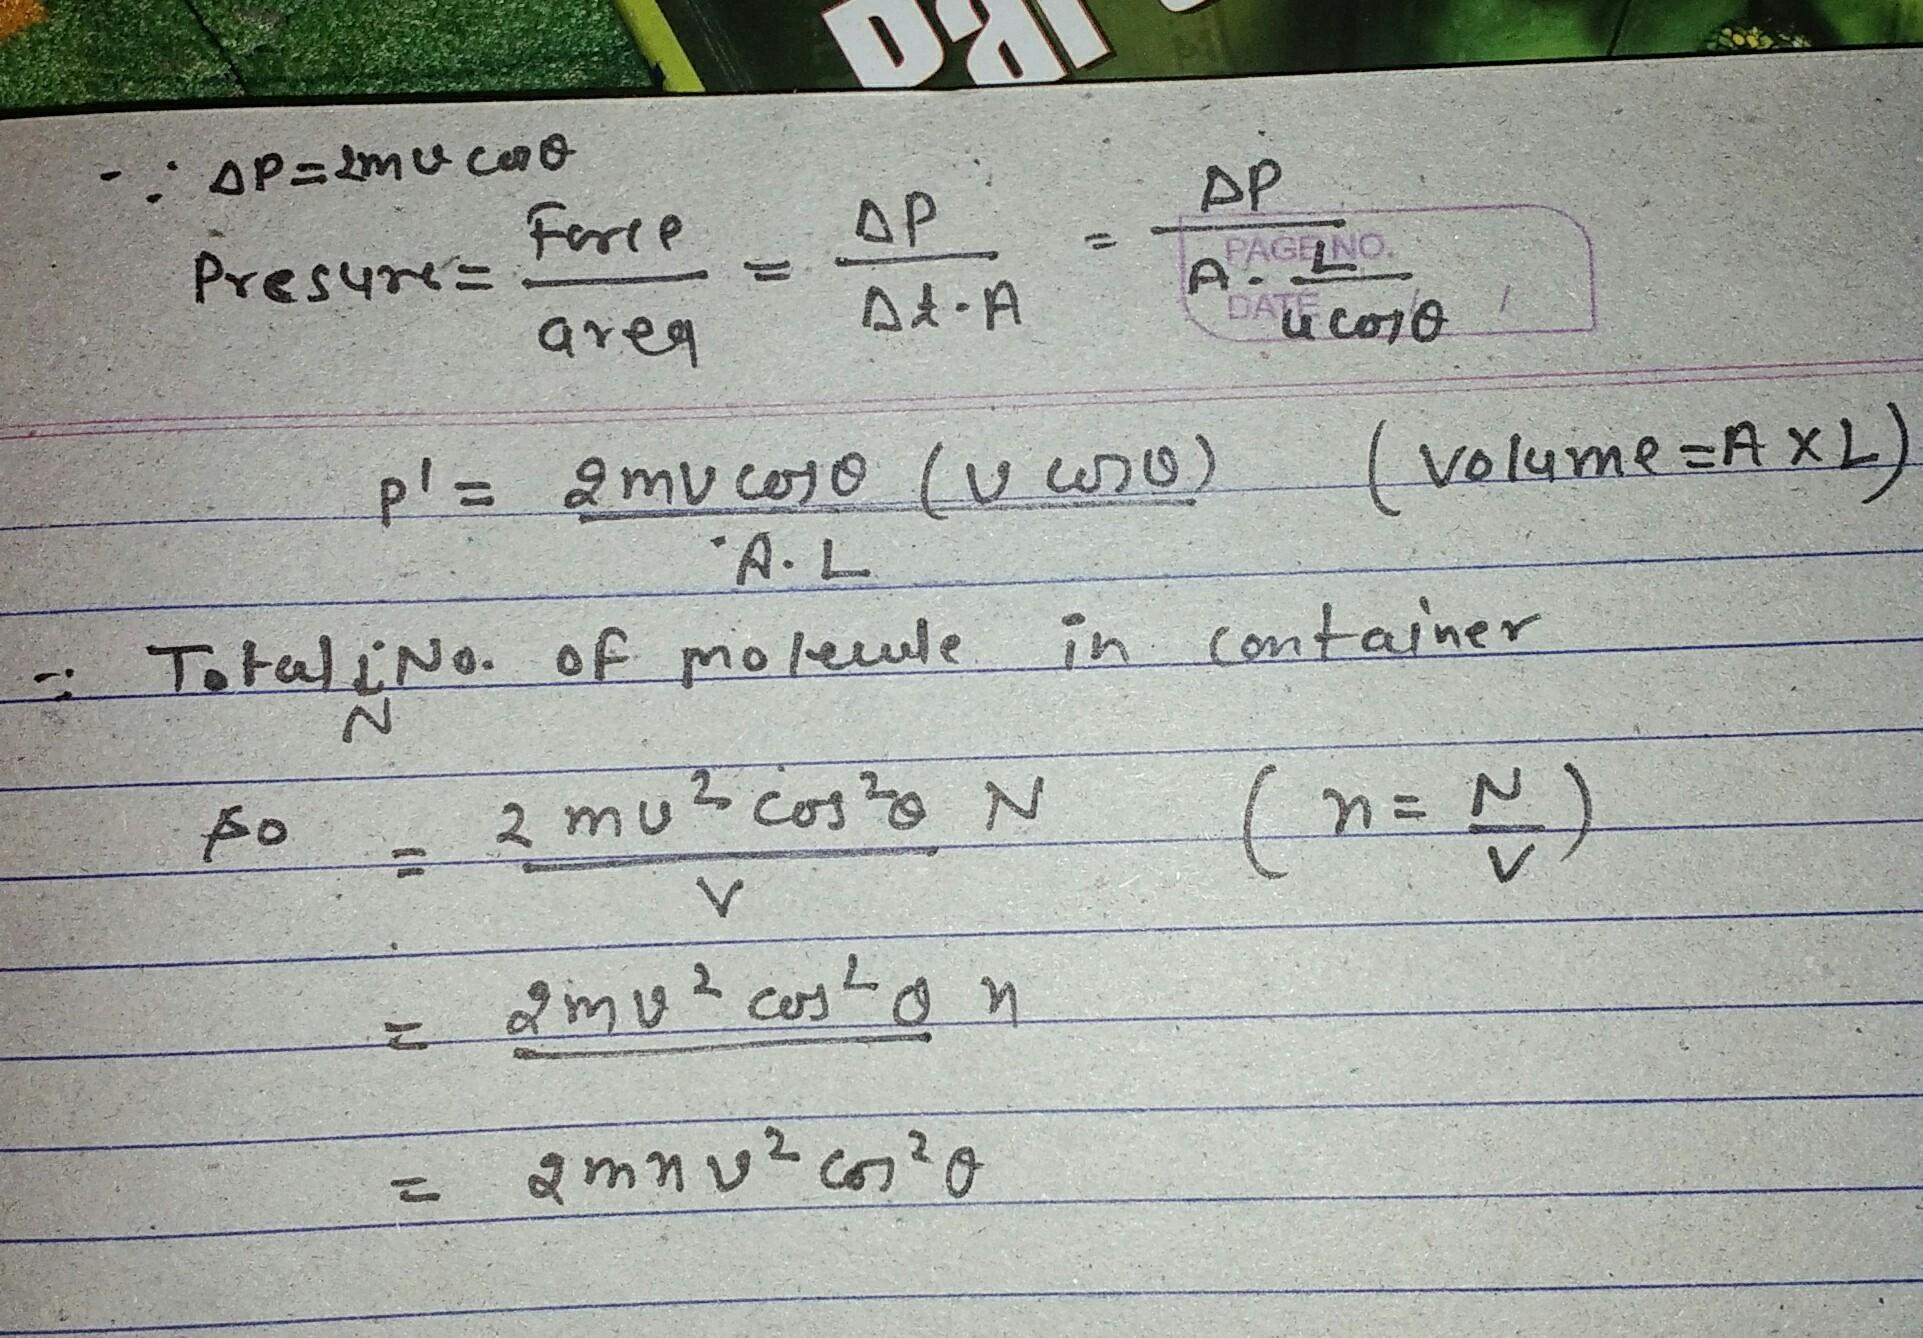 ∵ ΔP = 2mv cosθ
Presure = Force / area = ΔP / Δt·A = ΔP / A · L / v cosθ
PAGE NO.
DATE / /
p' = 2mv cosθ (v cosθ) / A.L (volume = A × L)
∵ Total No. of molecule in container
N
So = 2mv² cos²θ N / V (n = N / V)
= 2mv² cos²θ n
= 2mnv² cos²θ